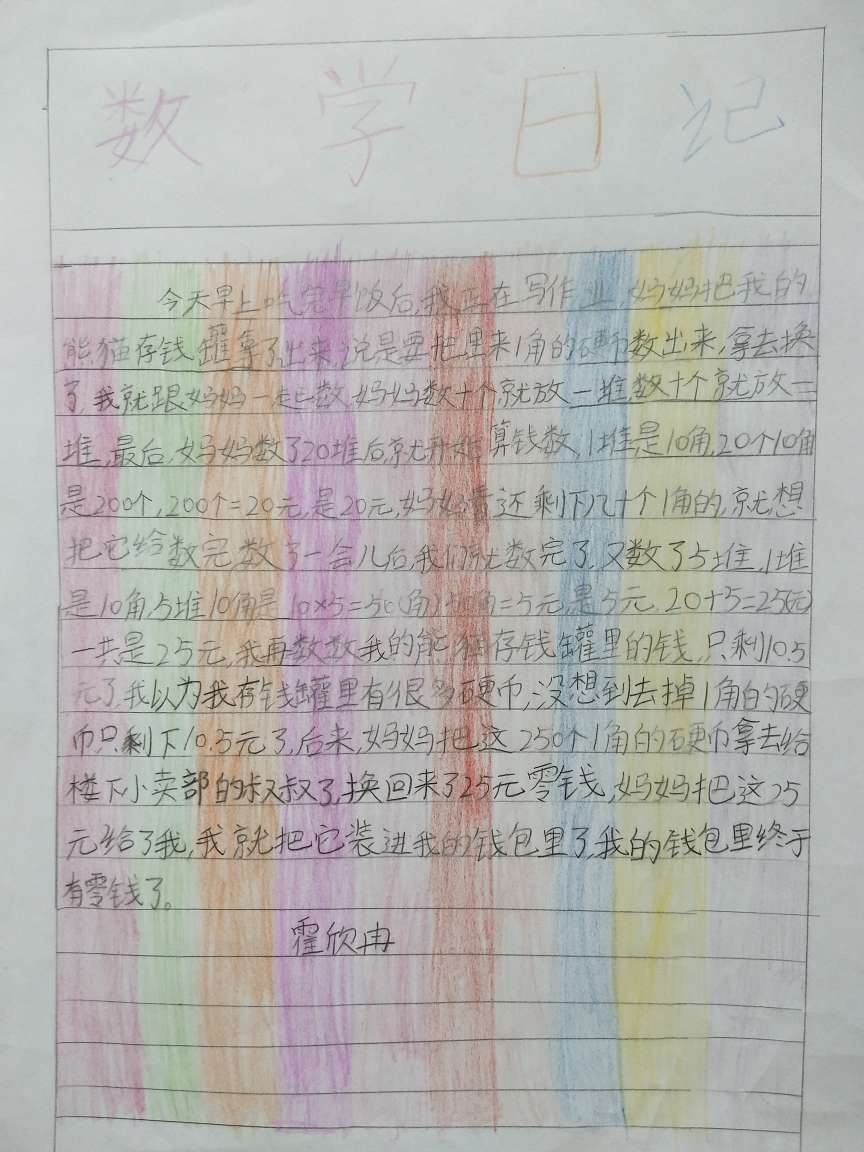 数学日记
今天早上吃完早饭后,我正在写作业,妈妈把我的
熊猫存钱罐拿了出来,说是要把里来1角的硬币数出来,拿去换
了,我就跟妈妈一起数,妈妈数十个就放一堆,数十个就放一
堆,最后,妈妈数了20堆后,就开始算钱数,1堆是10角,20个10角
是200个,200个=20元,是20元,妈妈看还剩下几十个1角的,就想
把它给数完,数了一会儿后,我们就数完了,又数了5堆,1堆
是10角,5堆10角是10×5=50(角),50角=5元,是5元,20+5=25(元)
一共是25元,我再数数我的熊猫存钱罐里的钱,只剩10.5
元了,我以为我存钱罐里有很多硬币,没想到去掉1角的硬
币只剩下10.5元了,后来,妈妈把这250个1角的硬币拿去给
楼下小卖部的叔叔了,换回来了25元零钱,妈妈把这25
元给了我,我就把它装进我的钱包里了,我的钱包里终于
有零钱了。
霍欣冉